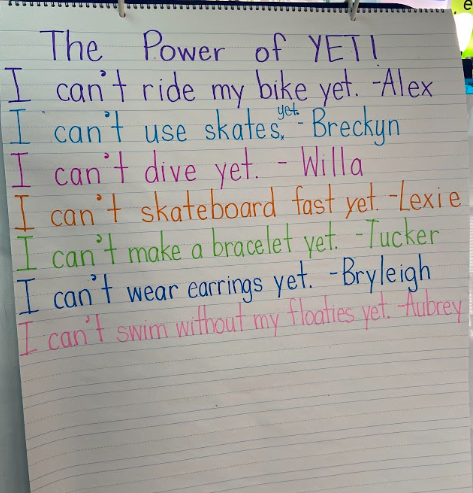 The Power of YET!
I can't ride my bike yet. -Alex
I can't use skates, yet. - Breckyn
I can't dive yet. - Willa
I can't skateboard fast yet. -Lexie
I can't make a bracelet yet. -Tucker
I can't wear earrings yet. -Bryleigh
I can't swim without my floaties yet. -Aubrey